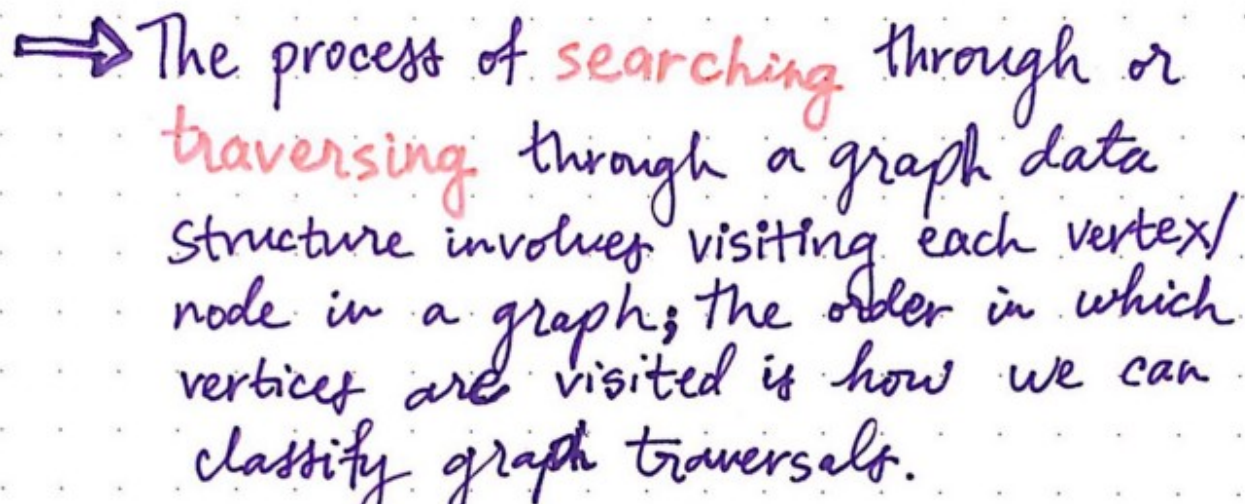 The process of searching through or
traversing through a graph data
structure involves visiting each vertex/
node in a graph; the order in which
vertices are visited is how we can
classify graph traversals.